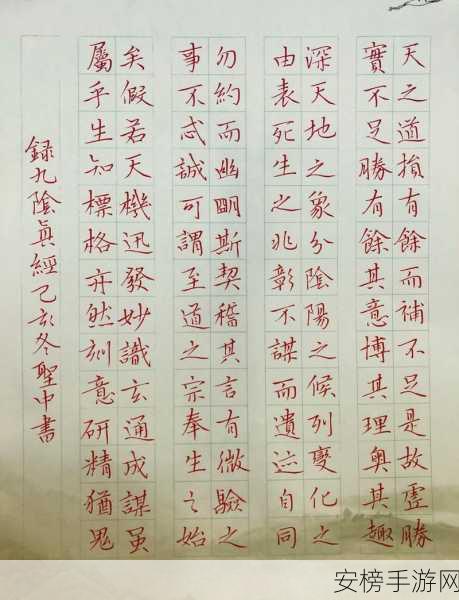 天之道損有餘而補不足是故虛勝
實不足勝有餘其意博其理奧其趣
深天地之象分陰陽之候列變化之
由表死生之兆彰不謀而遺迹自同
勿約而幽明斯契稽其言有微驗之
事不忒誠可謂至道之宗奉生之始
矣假若天機迅發妙識玄通成謀虽
屬乎生知標格亦然刻意研精猶鬼
録九陰真經己亥冬聖中書
安榜手游网